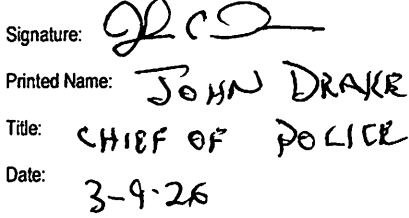 Signature:
Printed Name: JOHN DRAKE
Title: CHIEF OF POLICE
Date: 3-9-26